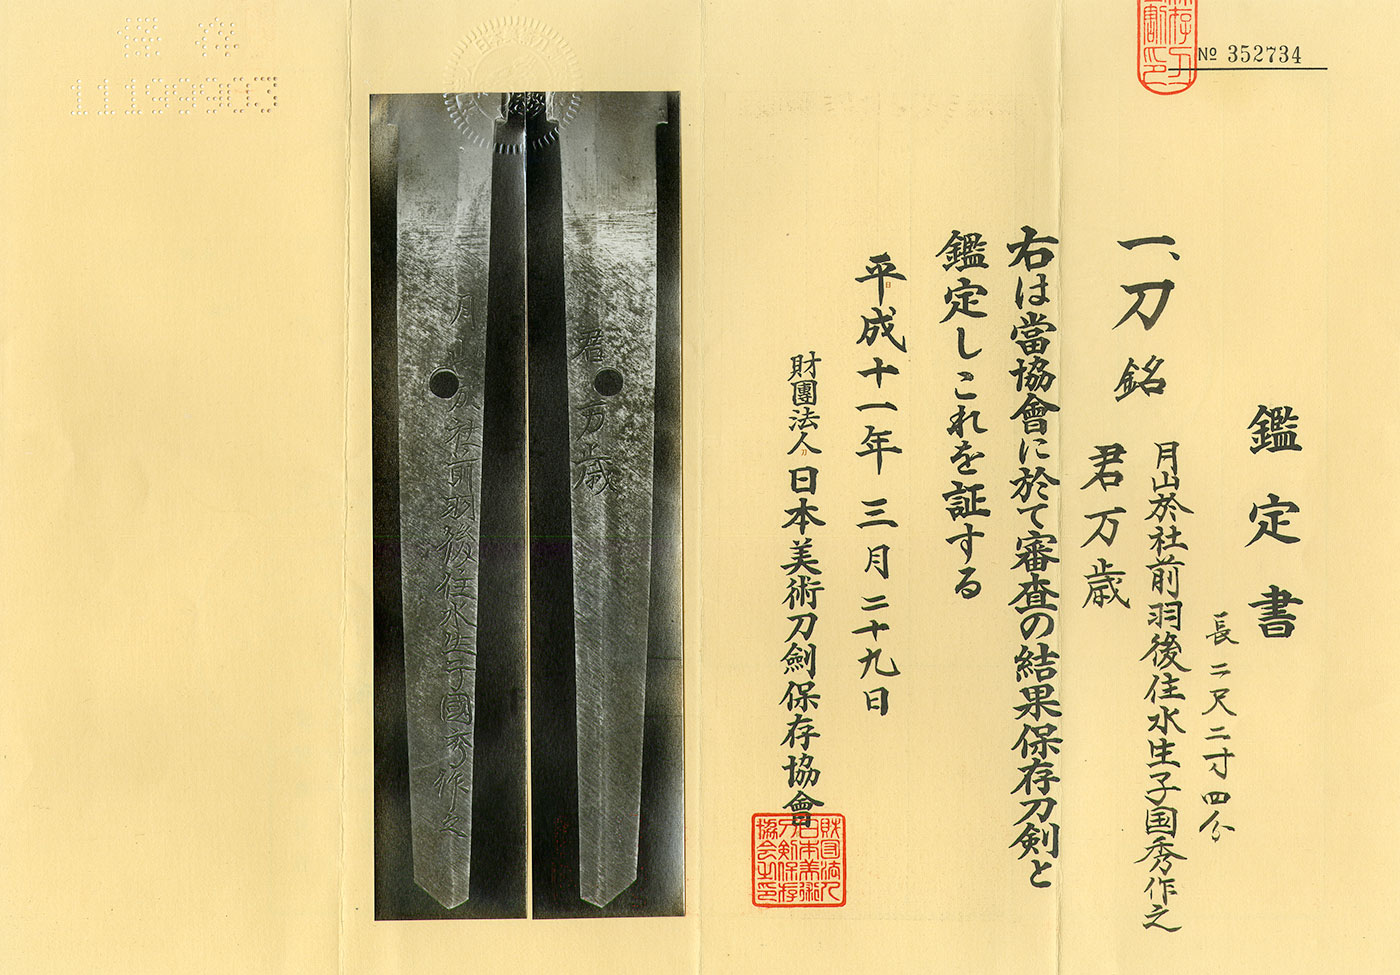 № 352734
鑑定書
一、刀 銘 月山於社前羽後住水生子国秀作之
君万歳
長二尺二寸四分
右は當協會に於て審査の結果保存刀剣と
鑑定しこれを証する
平成十一年三月二十九日
財團法人日本美術刀劍保存協會
財団法人日本美術刀剣保存協会之印
保存
11199903
君万歳
月山於社前羽後住水生子國秀作之